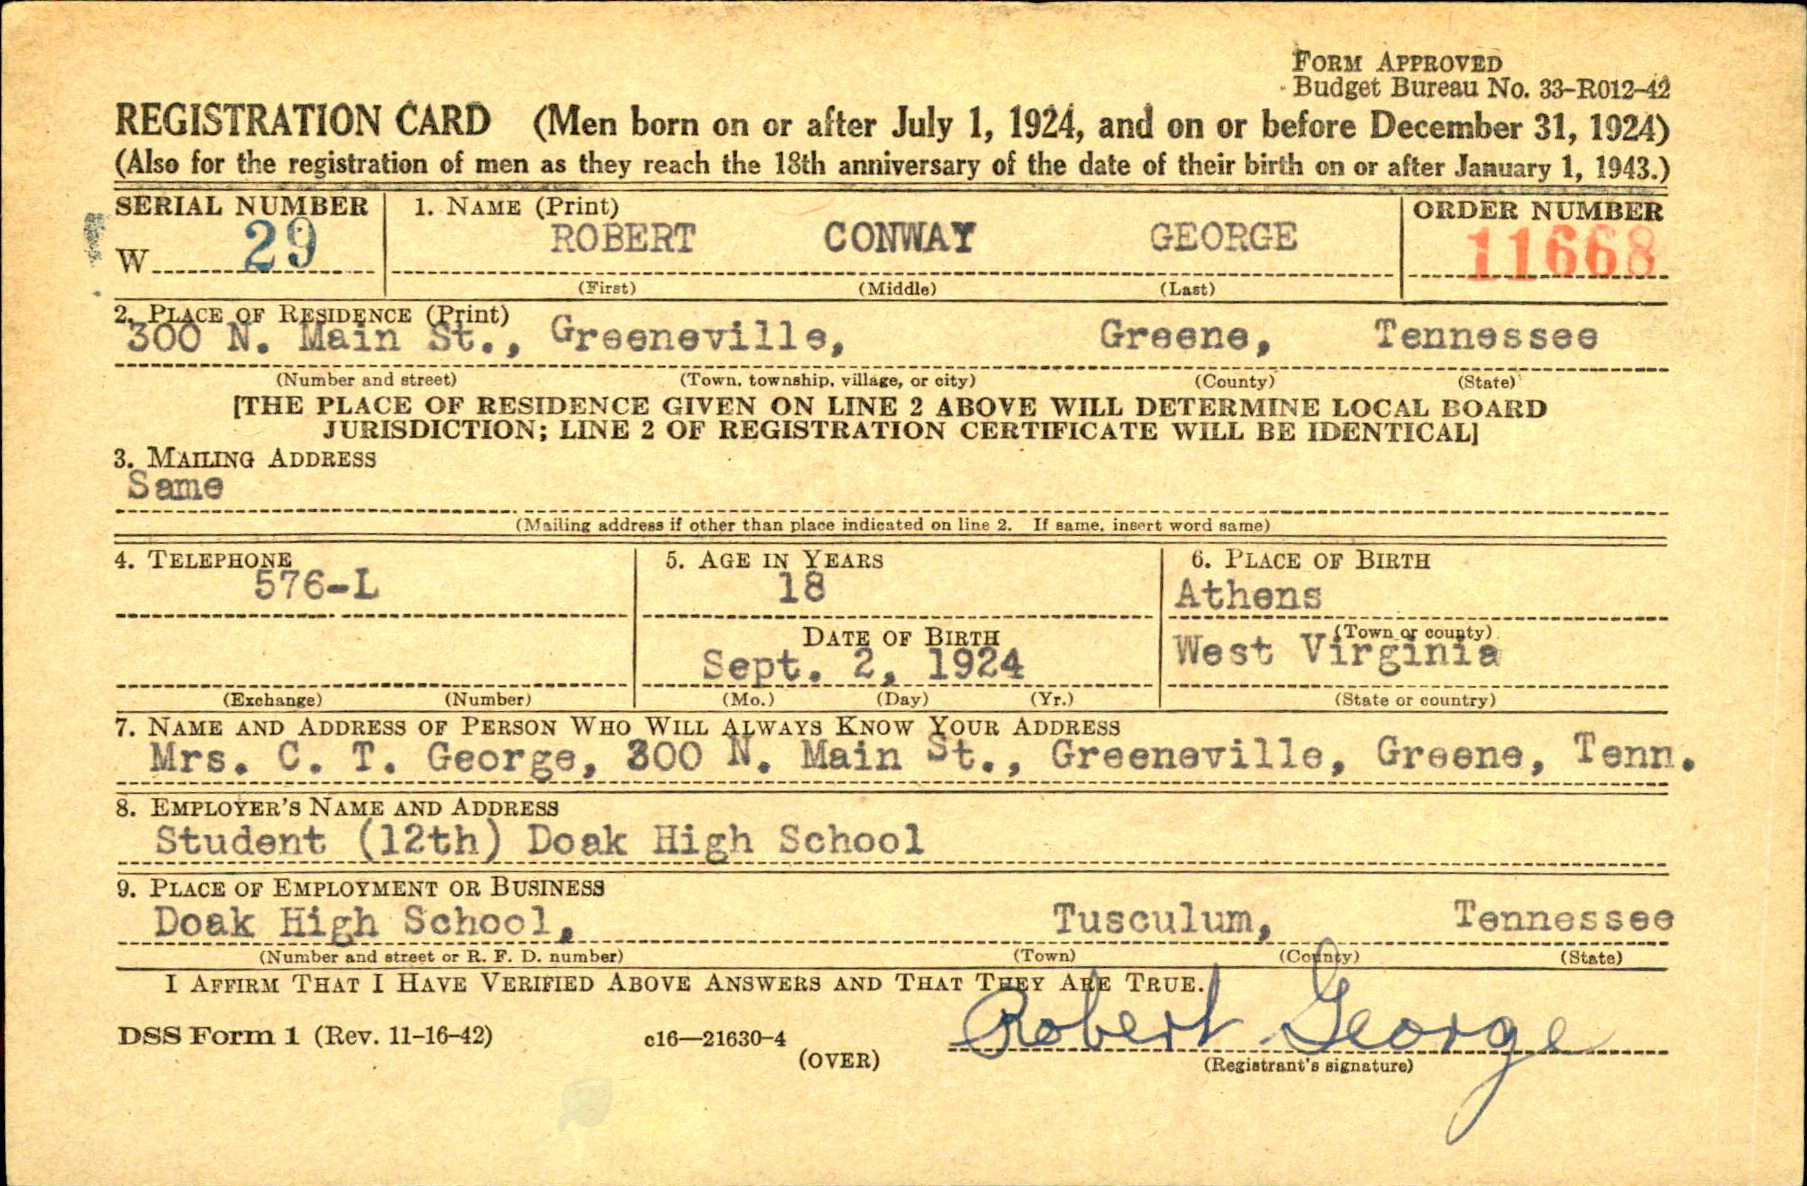 FORM APPROVED
Budget Bureau No. 33-R012-42
REGISTRATION CARD (Men born on or after July 1, 1924, and on or before December 31, 1924)
(Also for the registration of men as they reach the 18th anniversary of the date of their birth on or after January 1, 1943.)
SERIAL NUMBER 1. NAME (Print) ORDER NUMBER
W 29 ROBERT CONWAY GEORGE 11668
(First) (Middle) (Last)
2. PLACE OF RESIDENCE (Print)
300 N. Main St., Greeneville, Greene, Tennessee
(Number and street) (Town, township, village, or city) (County) (State)
[THE PLACE OF RESIDENCE GIVEN ON LINE 2 ABOVE WILL DETERMINE LOCAL BOARD
JURISDICTION; LINE 2 OF REGISTRATION CERTIFICATE WILL BE IDENTICAL]
3. MAILING ADDRESS
Same
(Mailing address if other than place indicated on line 2. If same, insert word same)
4. TELEPHONE 5. AGE IN YEARS 6. PLACE OF BIRTH
576-L 18 Athens
(Town or county)
DATE OF BIRTH
Sept. 2, 1924 West Virginia
(Exchange) (Number) (Mo.) (Day) (Yr.) (State or country)
7. NAME AND ADDRESS OF PERSON WHO WILL ALWAYS KNOW YOUR ADDRESS
Mrs. C. T. George, 300 N. Main St., Greeneville, Greene, Tenn.
8. EMPLOYER'S NAME AND ADDRESS
Student (12th) Doak High School
9. PLACE OF EMPLOYMENT OR BUSINESS
Doak High School, Tusculum, Tennessee
(Number and street or R. F. D. number) (Town) (County) (State)
I AFFIRM THAT I HAVE VERIFIED ABOVE ANSWERS AND THAT THEY ARE TRUE.
DSS Form 1 (Rev. 11-16-42) c16—21630-4 Robert George
(OVER) (Registrant's signature)